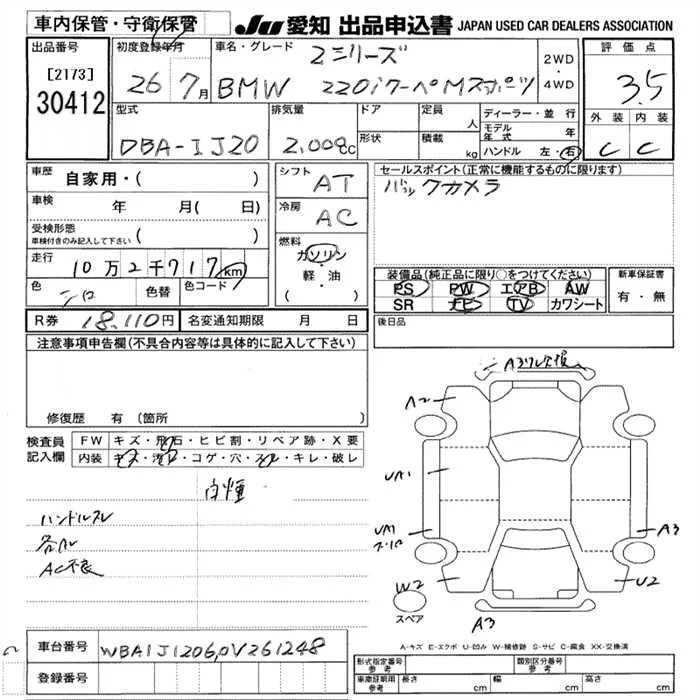 車内保管・守衛保管
JU 愛知 出品申込書 JAPAN USED CAR DEALERS ASSOCIATION
出品番号
[2173]
30412
初度登録年月
26 7月
車名・グレード
2シリーズ
BMW 220iクーペMスポーツ
2WD
・
4WD
評価点
3.5
外装 内装
C C
型式
DBA-1J20
排気量
2,000cc
ドア
形状
定員 人
積載 kg
ディーラー・並行
モデル年式 年
ハンドル 左・右
車歴 自家用・( )
車検 年 月(日)
受検形態
車検付きのみ記入して下さい ( )
走行
10万2千717km
色 シロ 色替 色コード( )
シフト AT
冷房 AC
燃料
ガソリン
・
軽・油
( )
セールスポイント(正常に機能するものに限ります)
バックカメラ
装備品(純正品に限り○をつけてください)
PS PW エアB AW
SR ナビ TV カワシート
新車保証書
有・無
後日品
R券 18,110円 名変通知期限 月 日
注意事項申告欄(不具合内容等は具体的に記入して下さい)
修復歴 有 (箇所 )
検査員
記入欄
FW キズ・飛石・ヒビ割・リペア跡・X要
内装 キズ・汚レ・コゲ・穴・スレ・キレ・破レ
白煙
ハンドルスレ
各スレ
AC不良
A3
A2
UA1
UA1
A3
W2
U2
A3
スペア
A-キズ E-エクボ U-凹み W-補修跡 S-サビ C-腐食 XX-交換済
車台番号 WBA1J12060V261248
登録番号
型式指定番号
参考
類別区分番号
参考
車庫証明用
参考
長さ cm 幅 cm 高さ cm